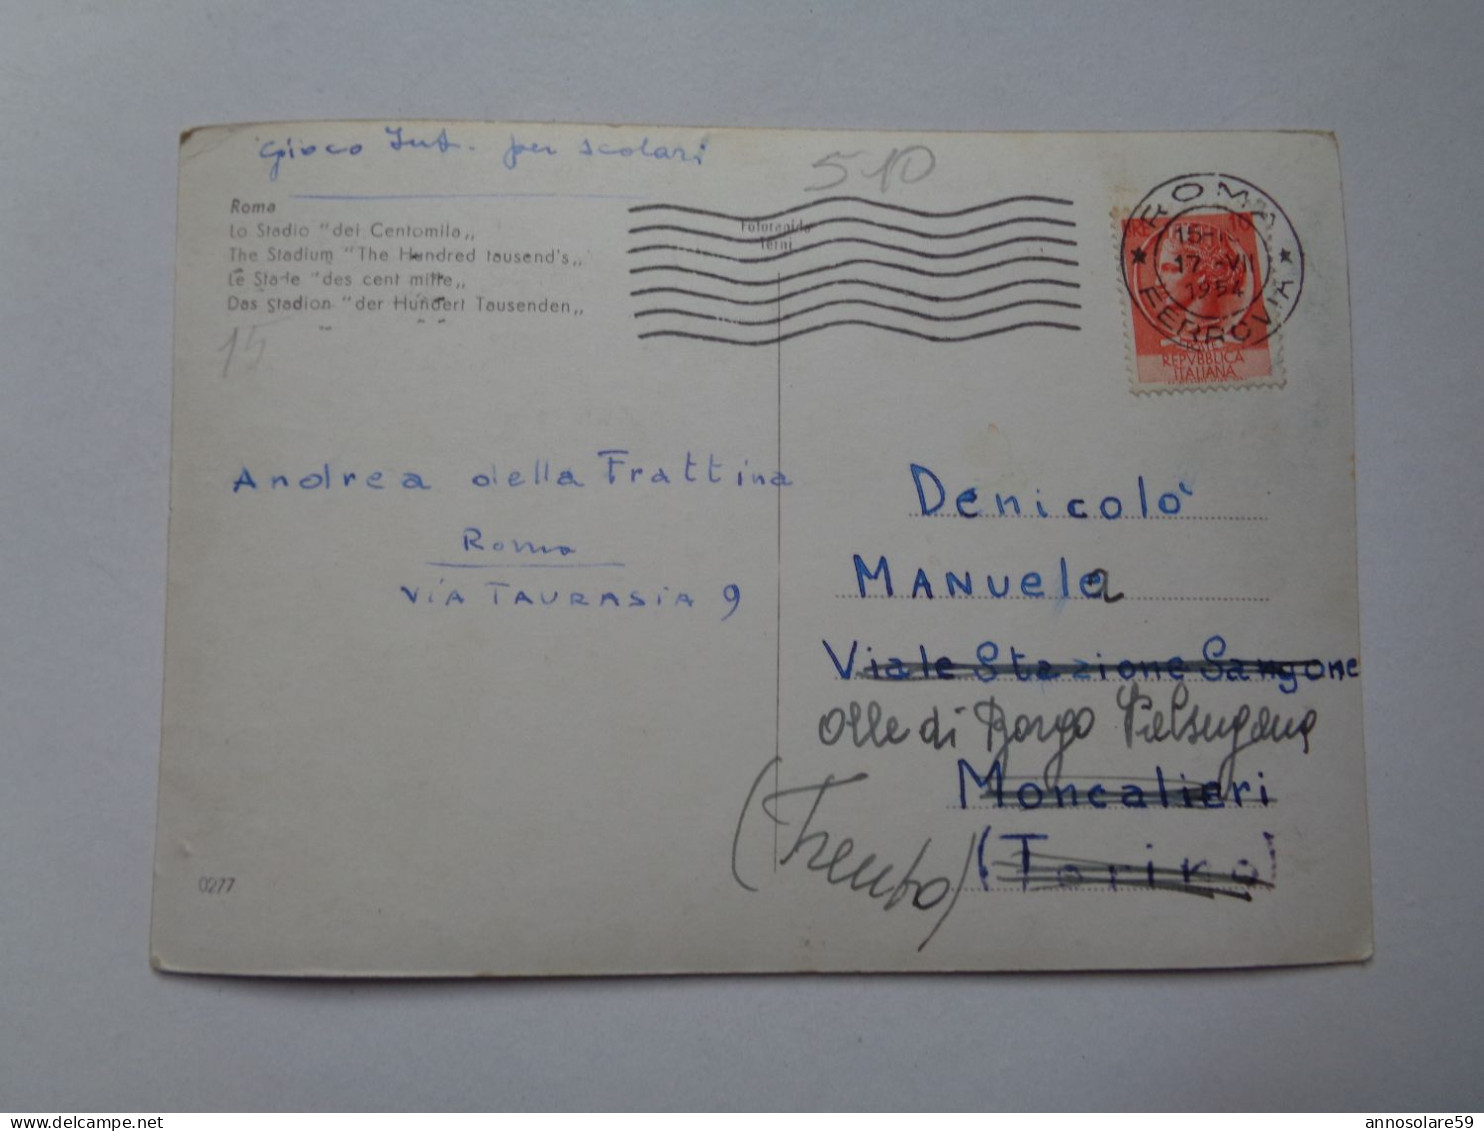 Gioco Int. per scolari
510
Roma
Lo Stadio "dei Centomila„
The Stadium "The Hundred tausend's„
Le Stade "des cent mille„
Das Stadion "der Hundert Tausenden„
15
Fotorapida
Terni
ROMA
15H
17 VII
1954
FERROVIA
10
REPVBBLICA
ITALIANA
Andrea della Frattina
Roma
VIA TAURASIA 9
Denicolò
MANUELA
Viale Stazione Sangone
Olle di Borgo Valsugana
Moncalieri
(Trento)
(Torino)
0277
annosolare59